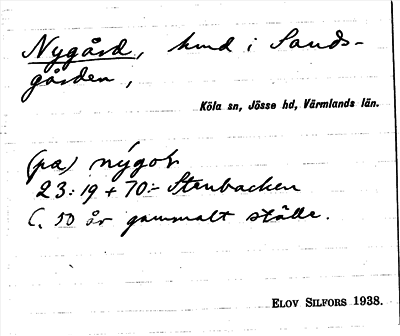 Nygård, hmd i Sands-
gården,
Köla sn, Jösse hd, Värmlands län.
(pa) nýgoɽ
23:19 + 70:- Stenbacken
C. 50 år gammalt ställe.
ELOV SILFORS 1938.